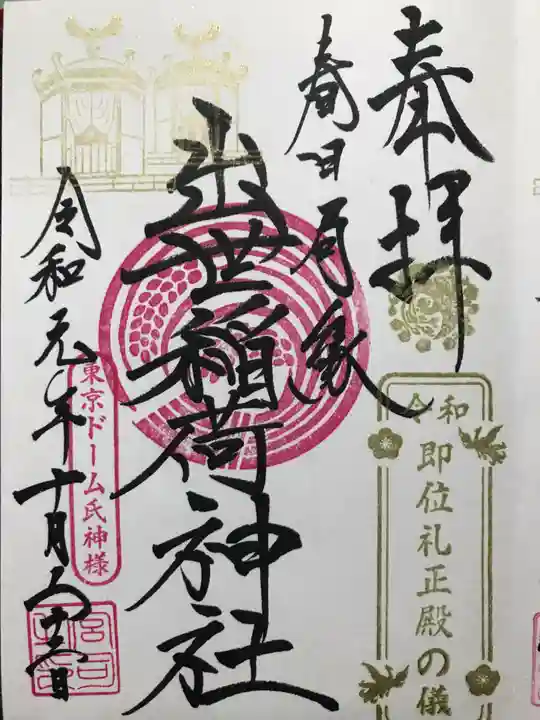 奉拝
令和
即位礼正殿の儀
春日局縁
出世稲荷神社
東京ドーム氏神様
令和元年十月二十二日